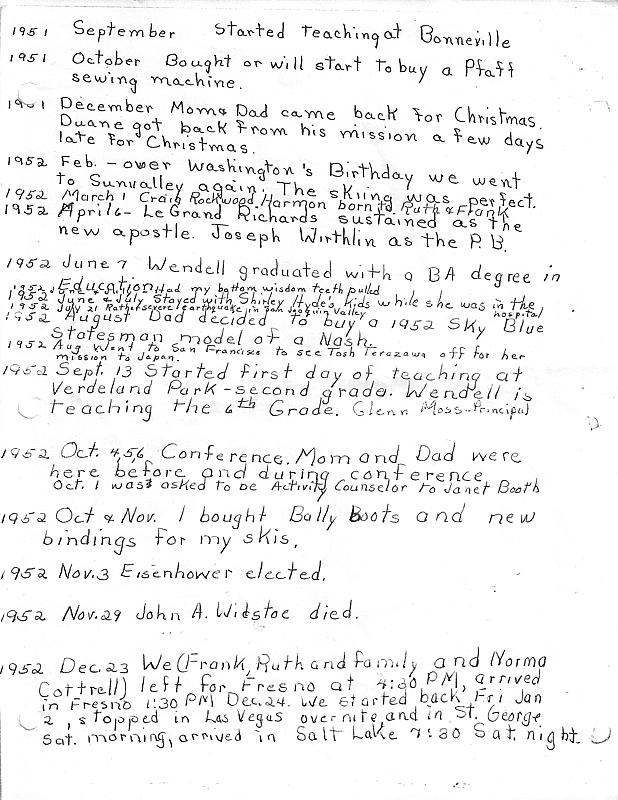 1951 September Started teaching at Bonneville
1951 October Bought or will start to buy a Pfaff
sewing machine.
1951 December Mom & Dad came back for Christmas.
Duane got back from his mission a few days
late for Christmas.
1952 Feb. - over Washington's Birthday we went
to Sunvalley again. The skiing was perfect.
1952 March 1 Craig Rockwood Harmon born to Ruth & Frank
1952 April 6 - LeGrand Richards sustained as the
new apostle. Joseph Wirthlin as the P.B.
1952 June 7 Wendell graduated with a BA degree in
Education.
1952 had my bottom wisdom teeth pulled
1952 June & July Stayed with Shirley Hyde's kids while she was in the
hospital
1952 July 21 Rather severe earthquake in San Joaquin Valley
1952 August Dad decided to buy a 1952 Sky Blue
Statesman model of a Nash.
1952 Aug Went to San Francisco to see Tosh Terazawa off for her
mission to Japan.
1952 Sept. 13 Started first day of teaching at
Verdeland Park - second grade. Wendell is
teaching the 6th Grade. Glenn Moss-Principal
1952 Oct. 4,5,6 Conference. Mom and Dad were
here before and during conference
Oct. 1 was asked to be Activity Counselor to Janet Booth
1952 Oct & Nov. I bought Bally Boots and new
bindings for my skis.
1952 Nov. 3 Eisenhower elected.
1952 Nov. 29 John A. Widstoe died.
1952 Dec. 23 We (Frank, Ruth and family and Norma
Cottrell) left for Fresno at 4:30 PM, arrived
in Fresno 1:30 PM Dec. 24. We started back Fri Jan
2, stopped in Las Vegas overnite and in St. George
Sat. morning, arrived in Salt Lake 7:30 Sat. night.